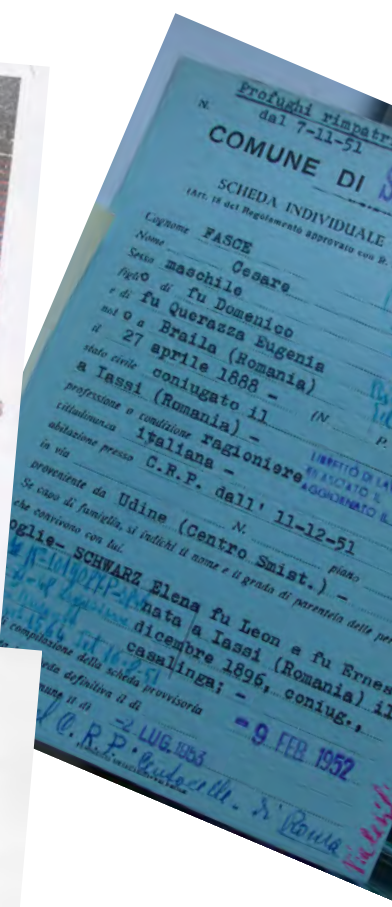 Profughi rimpatr
N. dal 7-11-51
COMUNE DI
SCHEDA INDIVIDUALE
(Art. 18 del Regolamento approvato con R.
Cognome FASCE
Nome Cesare
Sesso maschile
figlio di fu Domenico
e di fu Querazza Eugenia
nato a Braila (Romania)
il 27 aprile 1888 -
stato civile coniugato il
a Iassi (Romania) - (N. P.
professione o condizione ragioniere
cittadinanza italiana -
abitazione presso C.R.P. dall' 11-12-51
in via N. piano
proveniente da Udine (Centro Smist.) -
Se capo di famiglia, si indichi il nome e il grado di parentela delle per
che convivono con lui.
oglie- SCHWARZ Elena fu Leon e fu Ernes
nata a Iassi (Romania) il
dicembre 1896, coniug.,
casalinga; -
compilazione della scheda provvisoria
eda definitiva il dì - 9 FEB 1952
il dì -2 LUG. 1953
C.R.P. Centocelle - di Roma